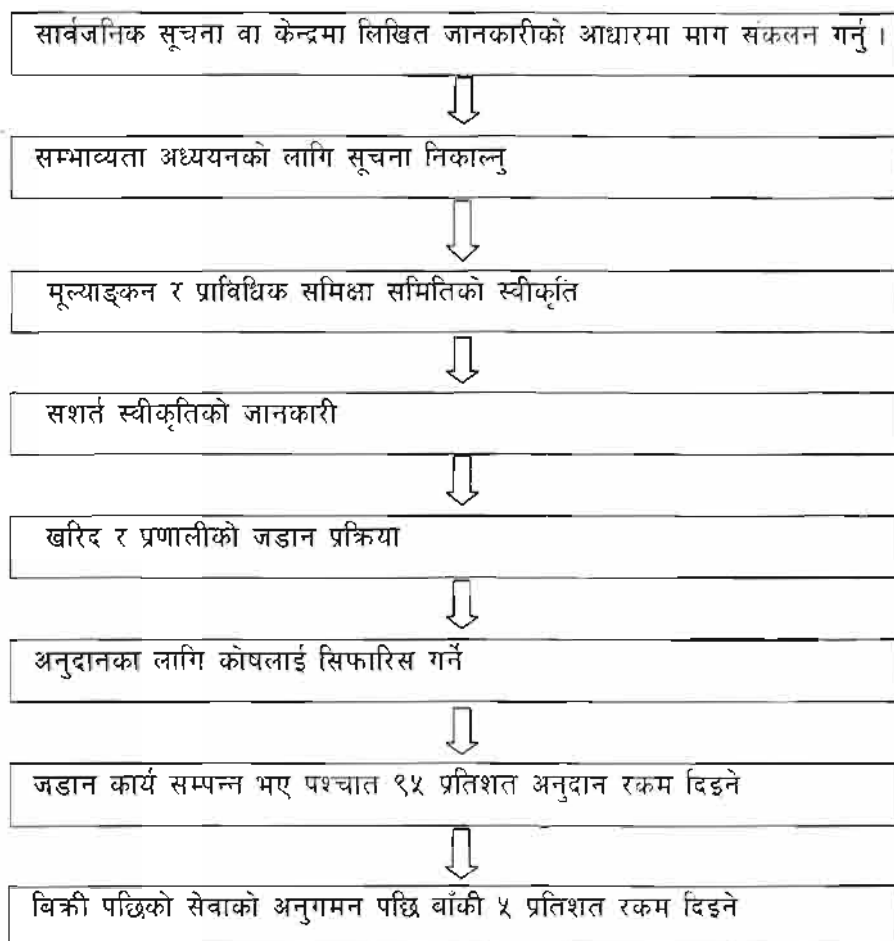 सार्वजनिक सूचना वा केन्द्रमा लिखित जानकारीको आधारमा माग संकलन गर्नु ।
सम्भाव्यता अध्ययनको लागि सूचना निकाल्नु
मूल्याङ्कन र प्राविधिक समिक्षा समितिको स्वीकृति
सशर्त स्वीकृतिको जानकारी
खरिद र प्रणालीको जडान प्रक्रिया
अनुदानका लागि कोषलाई सिफारिस गर्ने
जडान कार्य सम्पन्न भए पश्चात ९५ प्रतिशत अनुदान रकम दिइने
बिक्री पछिको सेवाको अनुगमन पछि बाँकी ५ प्रतिशत रकम दिइने